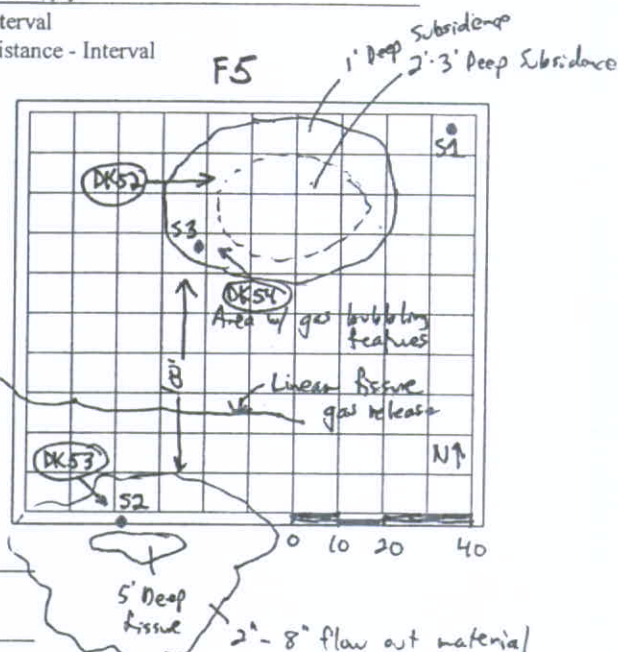 terval
istance - Interval
F5
1' Deep Subsidence
2'-3' Deep Subsidance
S1
DK52
S3
DK54
Area w/ gas bubbling
features
8'
Linear fissue
gas release
DK53
N↑
S2
0 10 20 40
5' Deep
fissue
2"- 8" flow out material